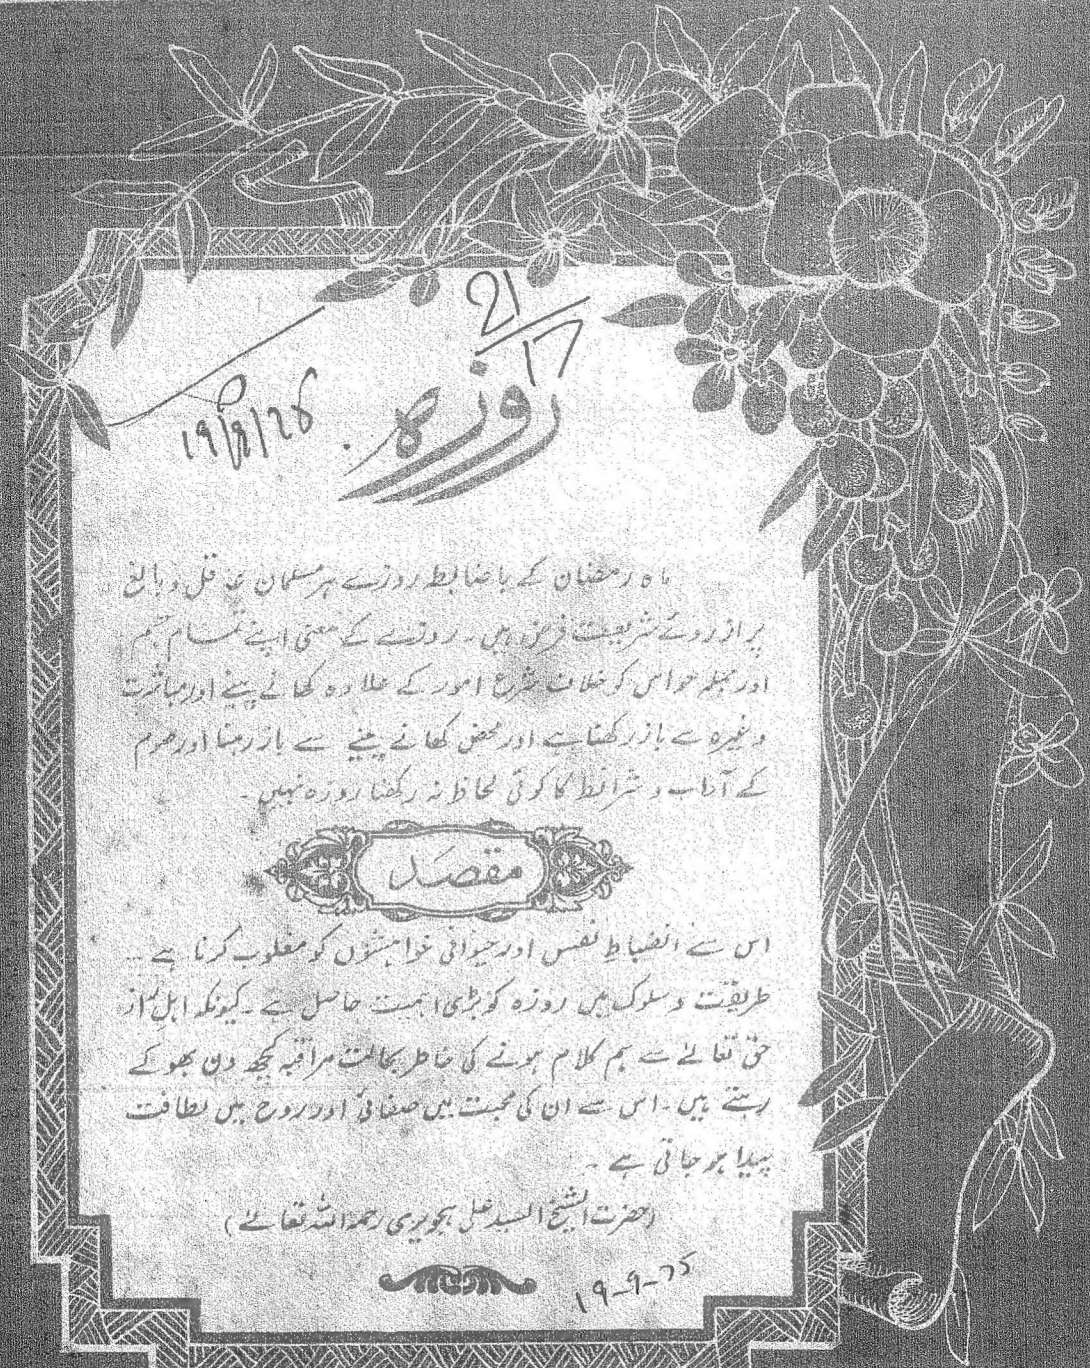 21
17
روزہ
ماہ رمضان کے باضابطہ روزے ہر مسلمان عاقل و بالغ
پر ازروئے شریعت فرض ہیں۔ روزے کے معنی اپنے تمام جسم
اور جملہ حواس کو خلاف شرع امور کے علاوہ کھانے پینے اور مباشرت
وغیرہ سے باز رکھنا ہے اور محض کھانے پینے سے باز رہنا اور صوم
کے آداب و شرائط کا کوئی لحاظ نہ رکھنا روزہ نہیں۔
مقصد
اس سے انضباطِ نفس اور حیوانی خواہشوں کو مغلوب کرنا ہے۔
طریقت و سلوک میں روزہ کو بڑی اہمیت حاصل ہے۔ کیونکہ اہلِ راز
حق تعالےٰ سے ہم کلام ہونے کی خاطر بحالت مراقبہ کچھ دن بھوکے
رہتے ہیں۔ اس سے ان کی محبت میں صفائی اور روح میں لطافت
پیدا ہو جاتی ہے۔
(حضرت الشیخ السید علی ہجویری رحمۃ اللہ تعالےٰ)
19-9-75